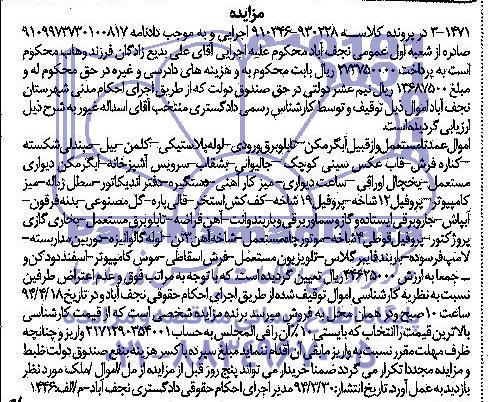 مزایده
۳-۱۴۷۱ در پرونده کلاسه ۹۳۰۲۲۸-۹۱۰۳۴۶ اجرایی و به موجب دادنامه ۹۱۰۹۹۷۳۷۳۰۱۰۰۸۱۷
صادره از شعبه اول عمومی نجف آباد محکوم علیه اجرایی آقای علی بدیع زادگان فرزند وهاب محکوم
است به پرداخت ۲۷۳۷۵۰۰۰۰ ریال بابت محکوم به و هزینه های دادرسی و غیره در حق محکوم له و
مبلغ ۱۳۶۸۷۵۰۰ ریال نیم عشر دولتی در حق صندوق دولت که از طریق اجرای احکام مدنی شهرستان
نجف آباد اموال ذیل توقیف و توسط کارشناس رسمی دادگستری منتخب آقای اسداله غیور به شرح ذیل
ارزیابی گردیده است.
اموال عمدتا مستعمل و از قبیل آبگرمکن- تابلو برق ورودی- لوله پلاستیکی- کلمن- بیل- صندلی شکسته
- کناره فرش- قاب عکس- سینی کوچک- جالیوانی- بشقاب- سرویس آشپزخانه- آبگرمکن دیواری
مستعمل- یخچال اوراقی- ساعت دیواری- میز کار آهنی- دستگیره- دفتر اندیکاتور- سطل زباله- میز
کامپیوتر- پروفیل ۱۲ شاخه- پروفیل ۱۹ شاخه- کف کش استخر- قالی پاره- گل مصنوعی- بدنه فرقون-
آبپاش- جاروبرقی ایستاده و گازوسماور برقی و باربند وانت- آهن قراضه- تابلو برق مستعمل- بخاری گازی
پروژکتور- پروفیل قوطی ۴ شاخه- موتور چاه مستعمل- شاخه آهن ۳ تن- لوله گالوانیزه- دوربین مداربسته-
لامپ فرسوده- باربند فایبرگلاس- تلویزیون مستعمل- فرش اسقاطی- موش کامپیوتر- اسفند دود کن و
... جمعا به ارزش ۴۴۶۲۵۰۰۰ ریال تعیین گردیده است که با توجه به مراتب فوق و عدم اعتراض طرفین
نسبت به نظریه کارشناسی اموال توقیف شده از طریق اجرای احکام حقوقی نجف آباد در تاریخ ۹۴/۴/۱۸
ساعت ۱۰ صبح و در همان محل به فروش میرسد برنده مزایده شخصی است که از قیمت کارشناسی
بالاترین قیمت را انتخاب که بایستی ۱۰٪ آن را فی المجلس به حساب ۲۱۷۱۳۹۰۳۵۴۰۰۱ واریز و چنانچه
ظرف مهلت مقرر نسبت به واریز مابقی آن اقدام ننماید مبلغ سپرده با کسر هزینه بنفع صندوق دولت ضبط
و مزایده مجددا تکرار می گردد ضمنا خریدار می تواند پنج روز قبل از مزایده از مال /اموال /ملک مورد نظر
بازدید به عمل آورد. تاریخ انتشار: ۹۴/۳/۳۰ مدیر اجرای احکام حقوقی دادگستری نجف آباد-م/الف: ۱۴۴۶